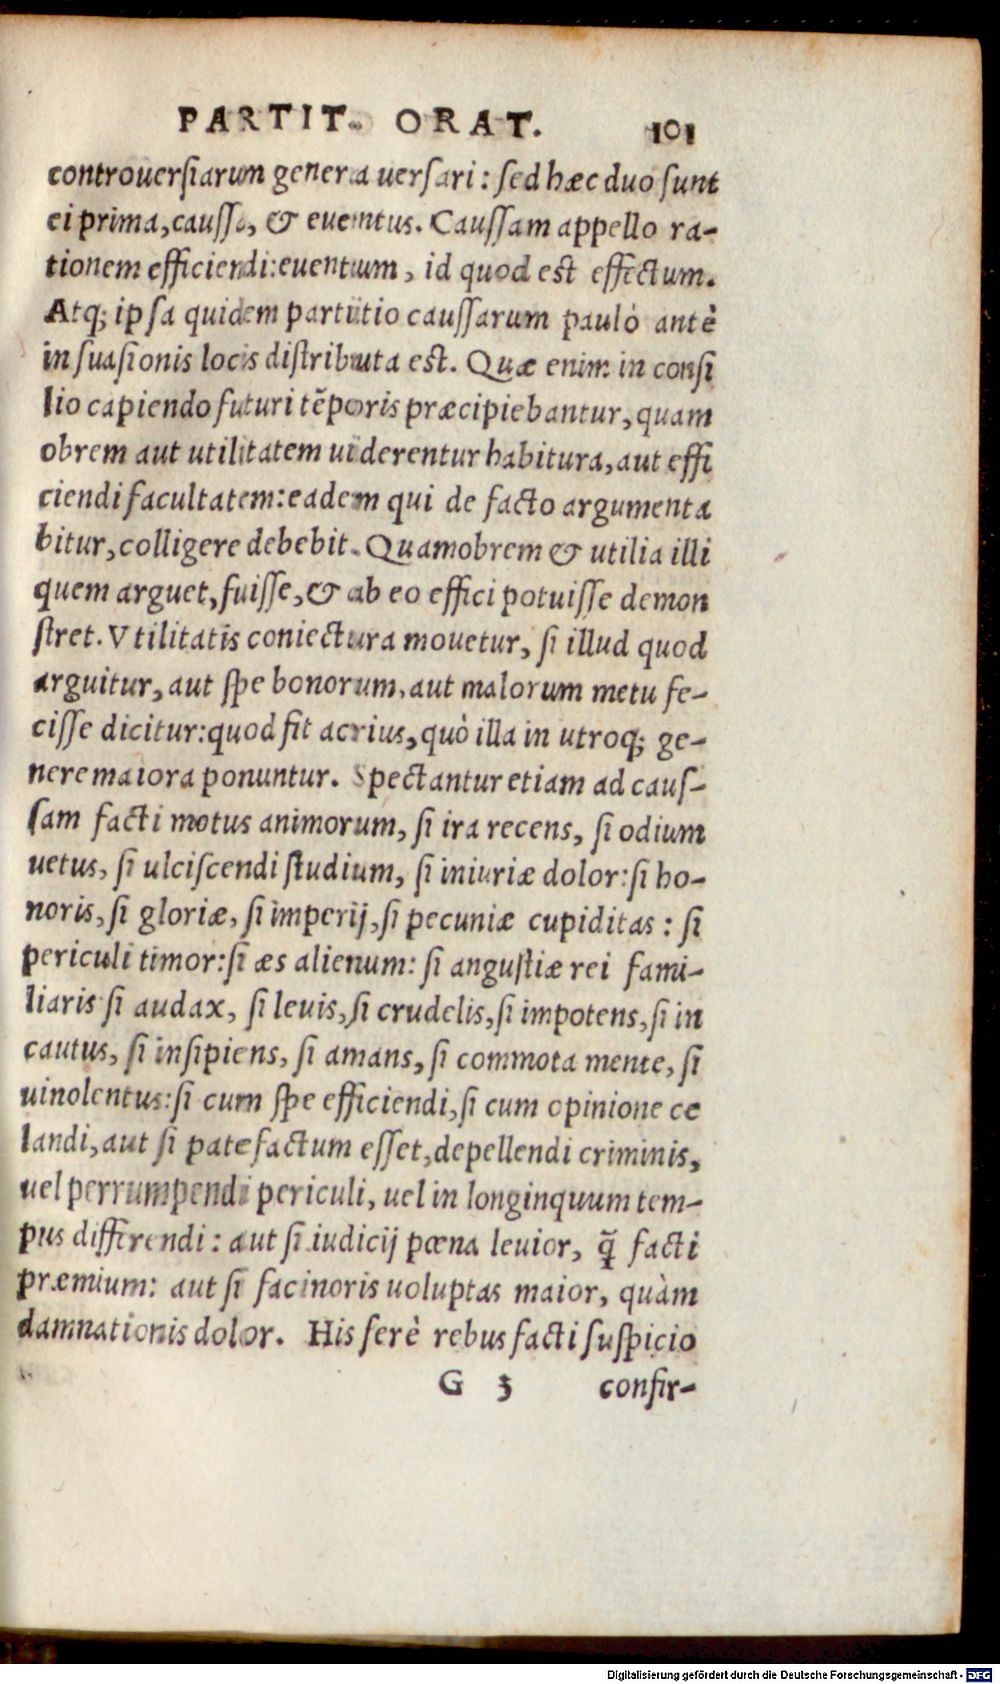 PARTIT. ORAT. 101
controuersiarum genera uersari: sed hæc duo sunt
ei prima, caussa, & euentus. Caussam appello ra-
tionem efficiendi: euentum, id quod est effectum.
Atq; ipsa quidem partitio caussarum paulò antè
in suasionis locis distributa est. Quæ enim in consi
lio capiendo futuri tẽporis præcipiebantur, quam
obrem aut utilitatem uiderentur habitura, aut effi
ciendi facultatem: eadem qui de facto argumenta
bitur, colligere debebit. Quamobrem & utilia illi
quem arguet, fuisse, & ab eo effici potuisse demon
stret. Vtilitatis coniectura mouetur, si illud quod
arguitur, aut spe bonorum, aut malorum metu fe-
cisse dicitur: quod fit acrius, quò illa in utroq; ge-
nere maiora ponuntur. Spectantur etiam ad caus-
sam facti motus animorum, si ira recens, si odium
uetus, si ulciscendi studium, si iniuriæ dolor: si ho-
noris, si gloriæ, si imperij, si pecuniæ cupiditas: si
periculi timor: si æs alienum: si angustiæ rei fami-
liaris si audax, si leuis, si crudelis, si impotens, si in
cautus, si insipiens, si amans, si commota mente, si
uinolentus: si cum spe efficiendi, si cum opinione ce
landi, aut si patefactum esset, depellendi criminis,
uel perrumpendi periculi, uel in longinquum tem-
pus differendi: aut si iudicij pœna leuior, q̃ facti
præmium: aut si facinoris uoluptas maior, quàm
damnationis dolor. His ferè rebus facti suspicio
G 3 confir-
Digitalisierung gefördert durch die Deutsche Forschungsgemeinschaft - DFG